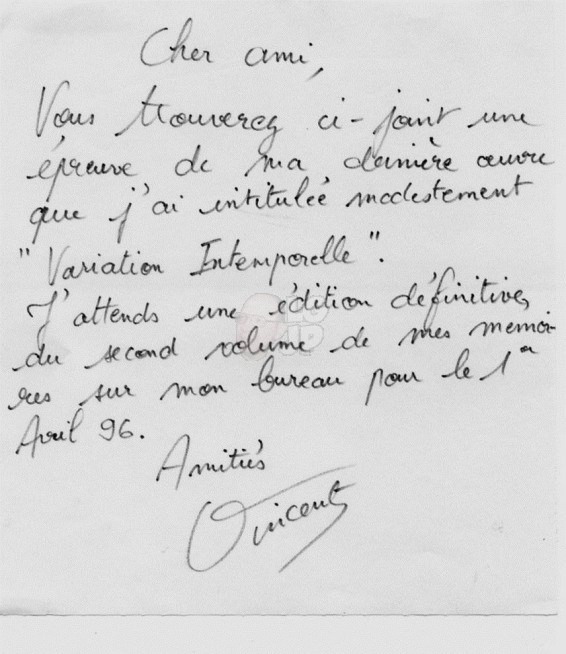 Cher ami,
Vous trouverez ci-joint une
épreuve de ma dernière œuvre
que j'ai intitulée modestement
"Variation Intemporelle".
J'attends une édition définitive,
du second volume de mes memoi-
res sur mon bureau pour le 1er
Avril 96.
Amitiés
Vincent